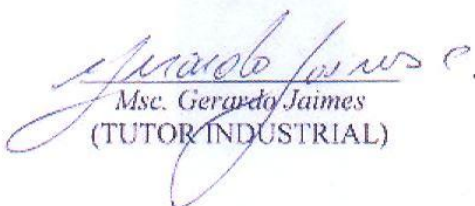 Gerardo Jaimes C.
Msc. Gerardo Jaimes
(TUTOR INDUSTRIAL)